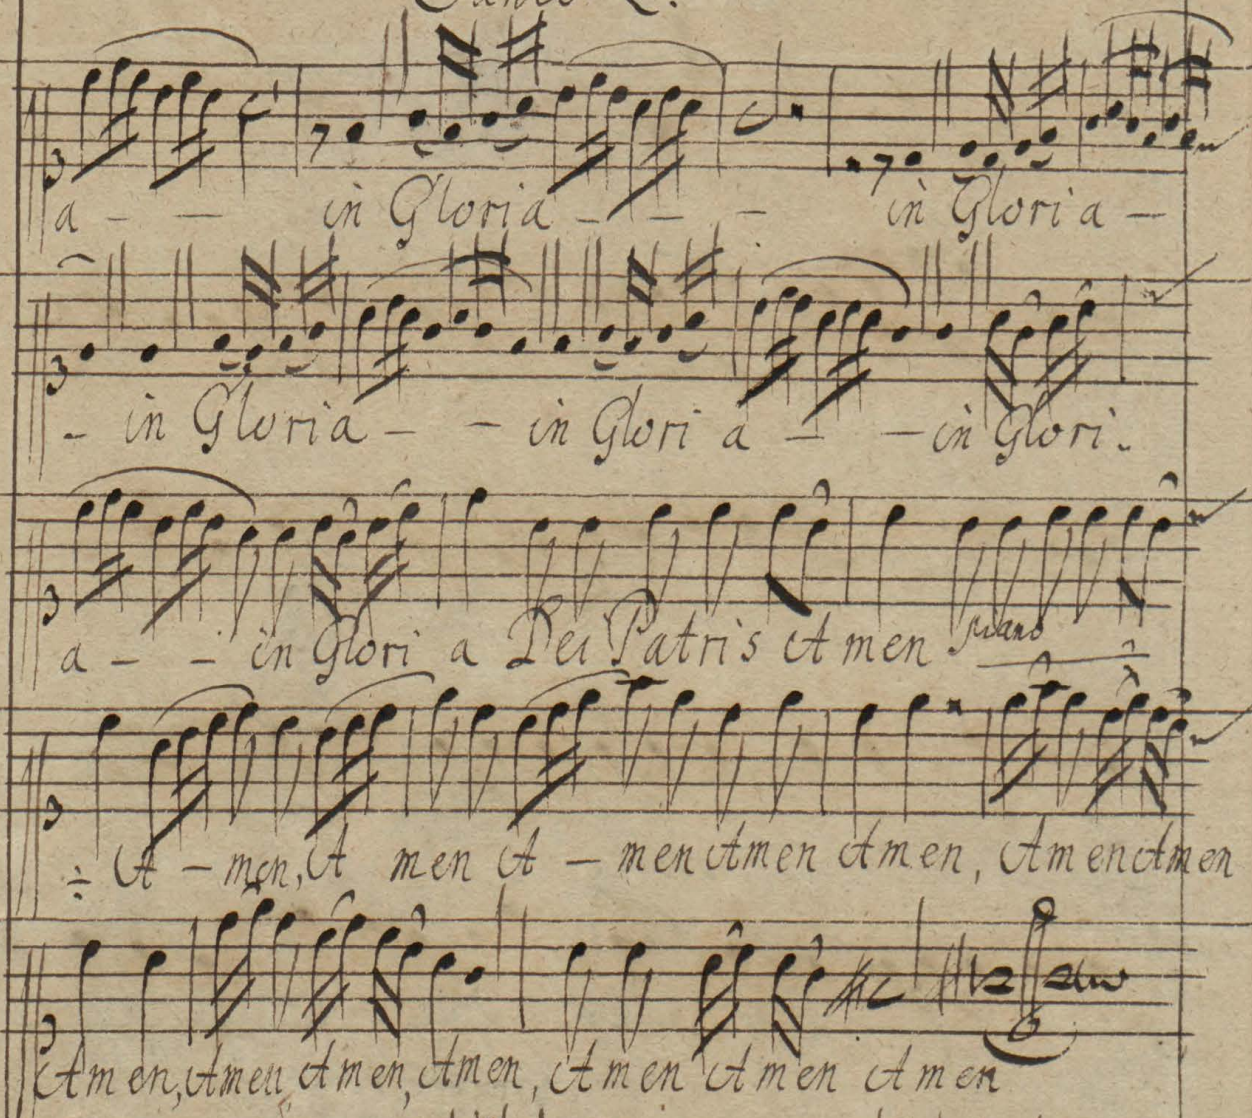 a - - in Gloria - - - in Gloria -
- in Gloria - - in Gloria - - in Glori.
a - - in Glori a Dei Patris Amen piano
A - men, A men A - men Amen Amen, Amen Amen
Amen, Amen, Amen, Amen, Amen Amen Amen